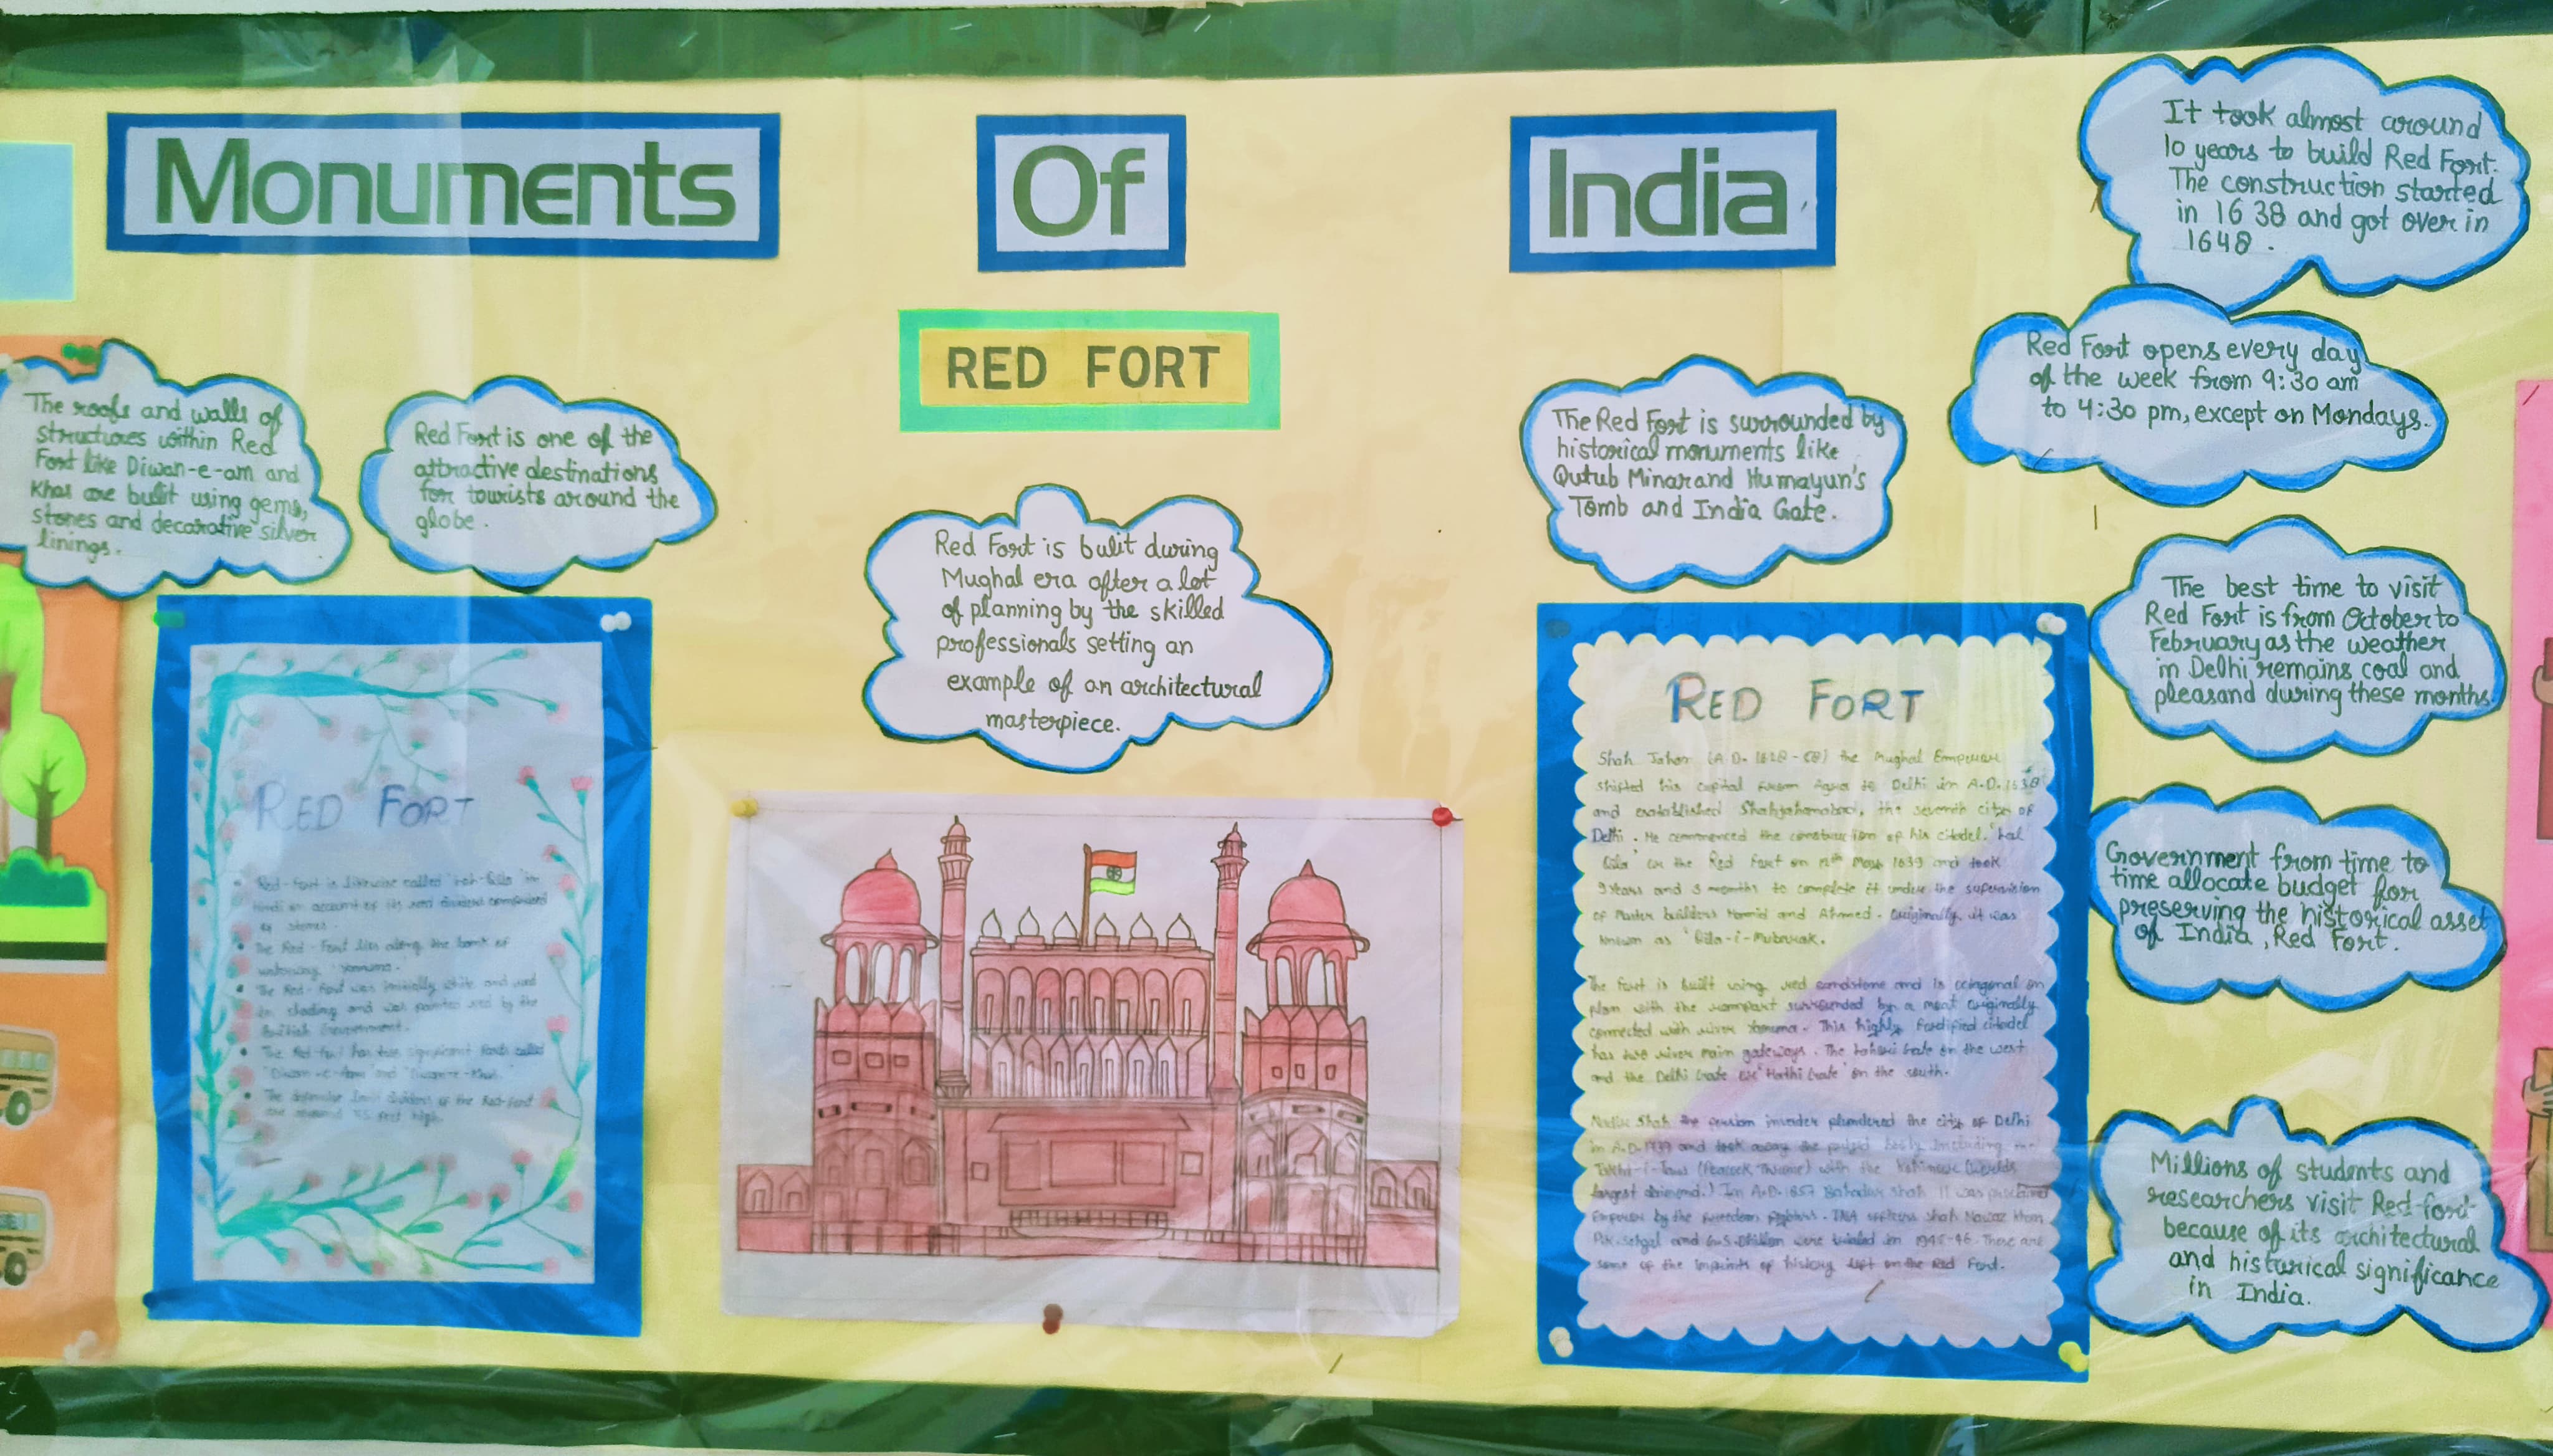 Monuments Of India
RED FORT
The roofs and walls of
structures within Red
Fort like Diwan-e-am and
Khas are bulit using gems,
stones and decorative silver
linings.
Red Fort is one of the
attractive destinations
for tourists around the
globe.
Red Fort is bulit during
Mughal era after a lot
of planning by the skilled
professionals setting an
example of an architectural
masterpiece.
The Red Fort is surrounded by
historical monuments like
Qutub Minar and Humayun's
Tomb and India Gate.
It took almost around
10 years to build Red Fort.
The construction started
in 1638 and got over in
1648.
Red Fort opens every day
of the week from 9:30 am
to 4:30 pm, except on Mondays.
The best time to visit
Red Fort is from October to
February as the weather
in Delhi remains coal and
pleasand during these months.
Government from time to
time allocate budget for
preserving the historical asset
of India, Red Fort.
Millions of students and
researchers visit Red-fort
because of its architectural
and historical significance
in India.
RED FORT
Red-Fort is likewise called
Hindi on account of its red
of stones.
The Red-Fort lies along the bank of
waterway
The Red-Fort was initially white and
in shading and was painted red by the
British Government.
The Red-Fort has two significant called
"Diwan-e-Aam" and "Diwan-e-Khas."
The of the Red-Fort
are feet high.
RED FORT
Shah Jahan (A.D. 1628-58) the Mughal Emperor
shifted his capital from Agra to Delhi in A.D. 1638
and Shahjahanabad, the seventh city of
Delhi. He commenced the construction of his citadel. Lal
Qila or the Red Fort on 1639 and took
9 years and 3 months to complete it under the supervision
of Master builders Hamid and Ahmed. Originally it was
known as 'Qila-i-Mubarak.
The Fort is built using red sandstone and is octagonal on
plan with the rampart surrounded by a moat originally
connected with river This highly citadel
has two main gateways. The Lahori Gate on the west
and the Delhi Gate or 'Hathi Gate' on the south.
Nadir Shah the invader plundered the city of Delhi
in A.D. 1739 and took away the including
(Peacock Throne) with the
largest In A.D. 1857 Bahadur Shah II was
Emperor by the freedom fighters. INA officers Shah Nawaz Khan
and G.S. Dhillon were in 1945-46. These are
some of the imprints of history left on the Red Fort.